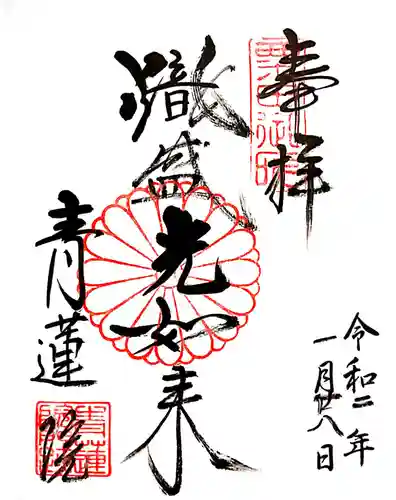 奉拝
熾盛光如来
青蓮院
令和二年
一月廿八日